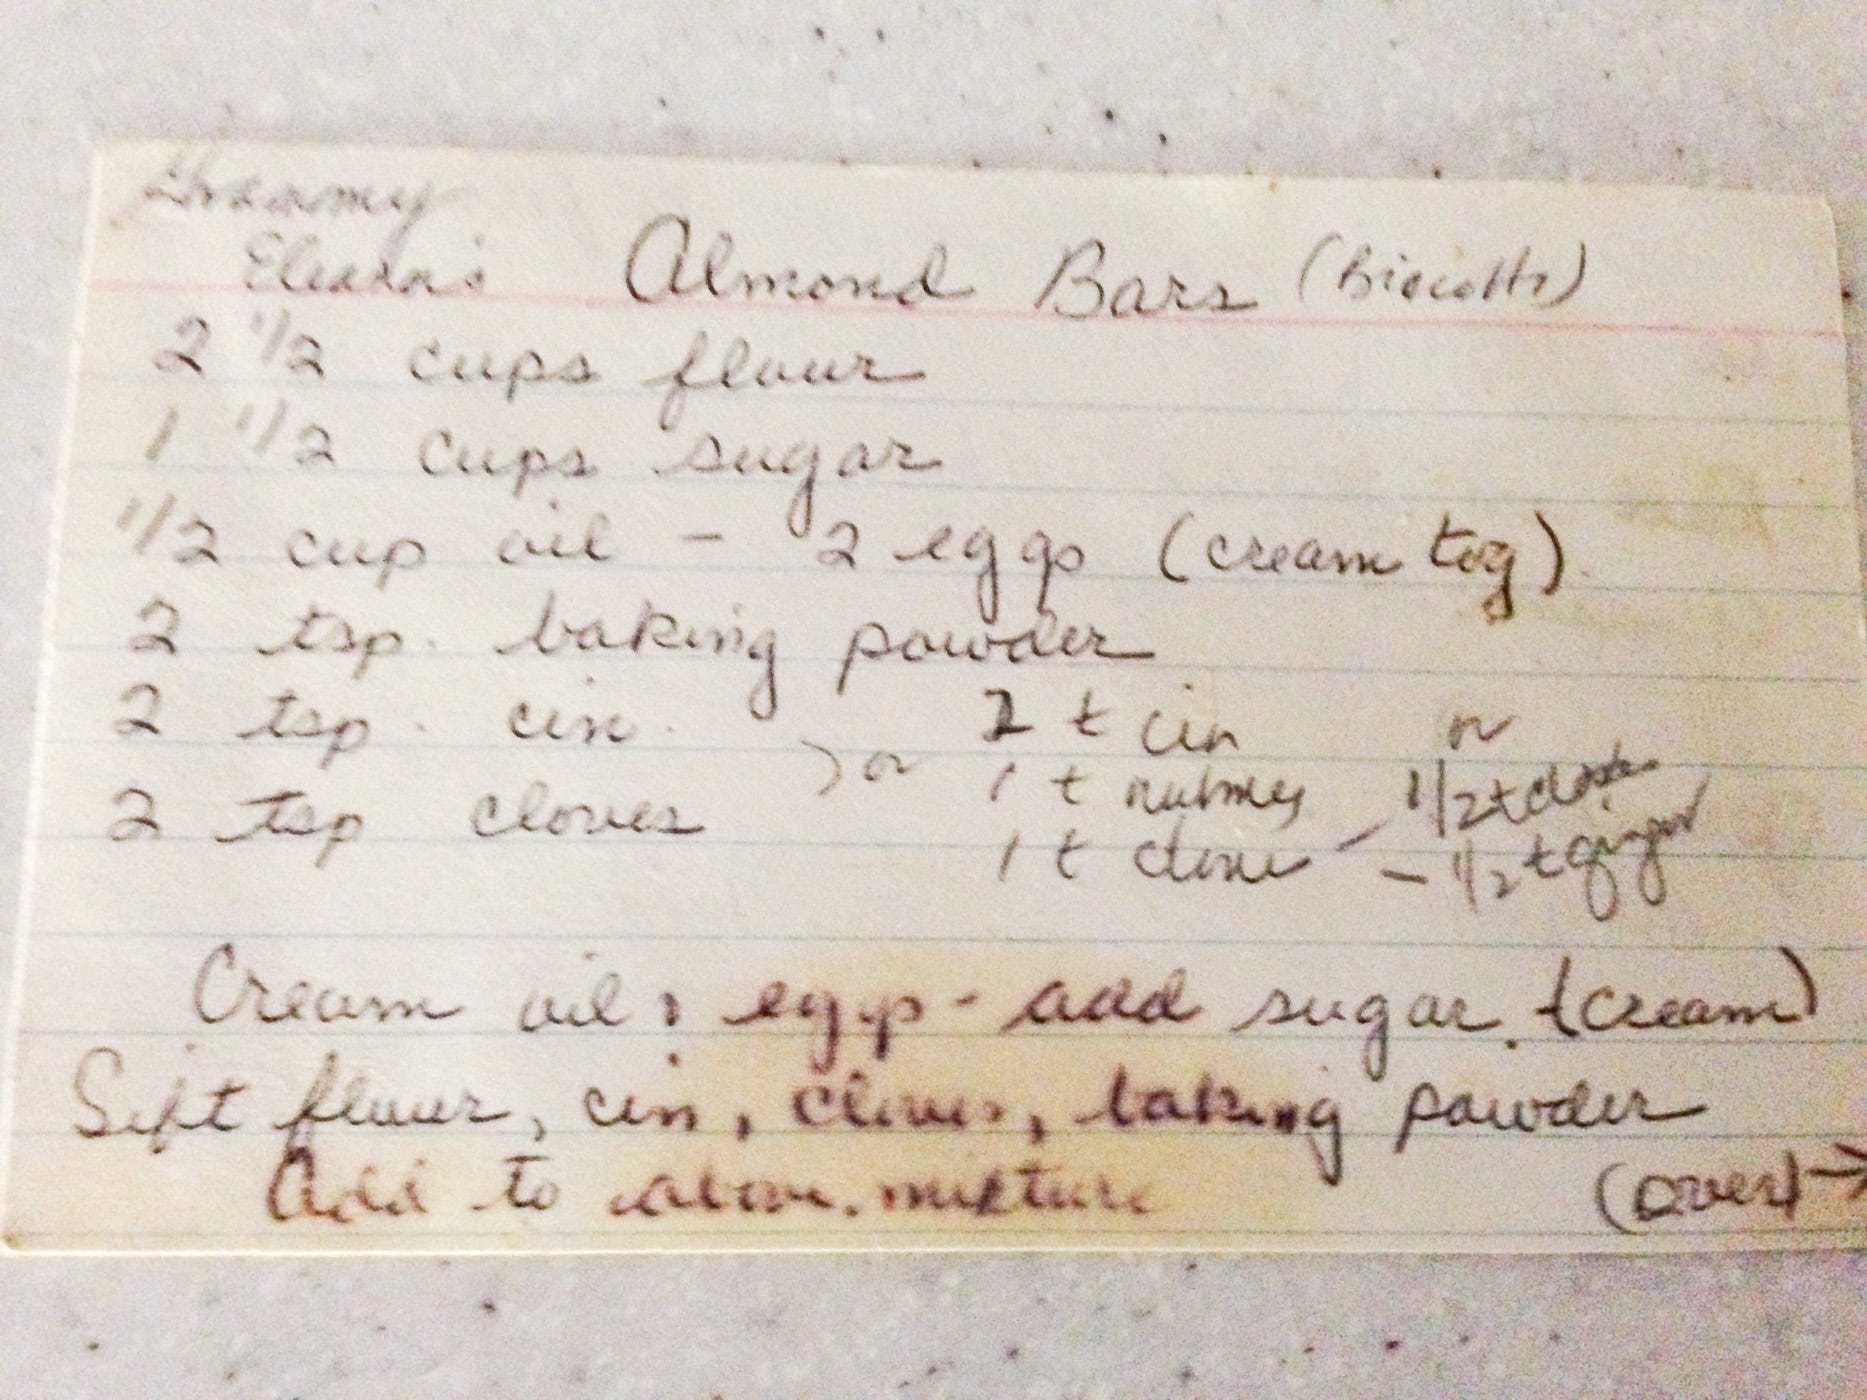 Grammy
Eleanor's Almond Bars (biscotti)
2 1/2 cups flour
1 1/2 cups sugar
1/2 cup oil - 2 eggs (cream tog)
2 tsp. baking powder
2 tsp. cin. ) or 2 t cin or
2 tsp cloves 1 t nutmeg 1/2 t clove
1 t clove - 1/2 t ginger
Cream oil & eggs - add sugar (cream)
Sift flour, cin, cloves, baking powder
Add to above mixture (over) →